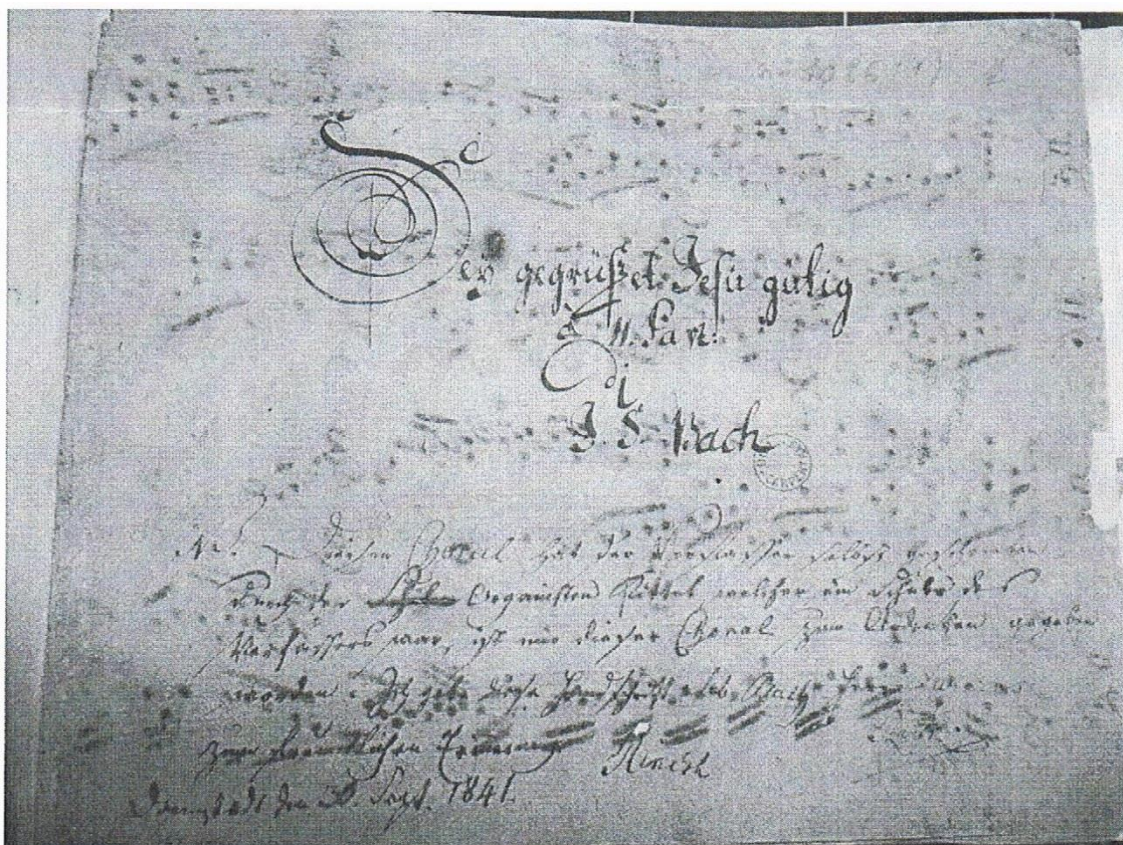 Sey gegrüßet Jesu gütig
è 11. Par:
di
J. S. Bach
NB. Diesen Choral hat der Verfasser selbst geschrieben.
Durch den Organisten Kittel welcher ein Schüler des
Verfassers war, ist mir dieser Choral zum Andenken gegeben
worden. Ich gebe diese Handschrift
zum freundlichen Erinnerung
Rinck
Darmstadt den Sept. 1841.